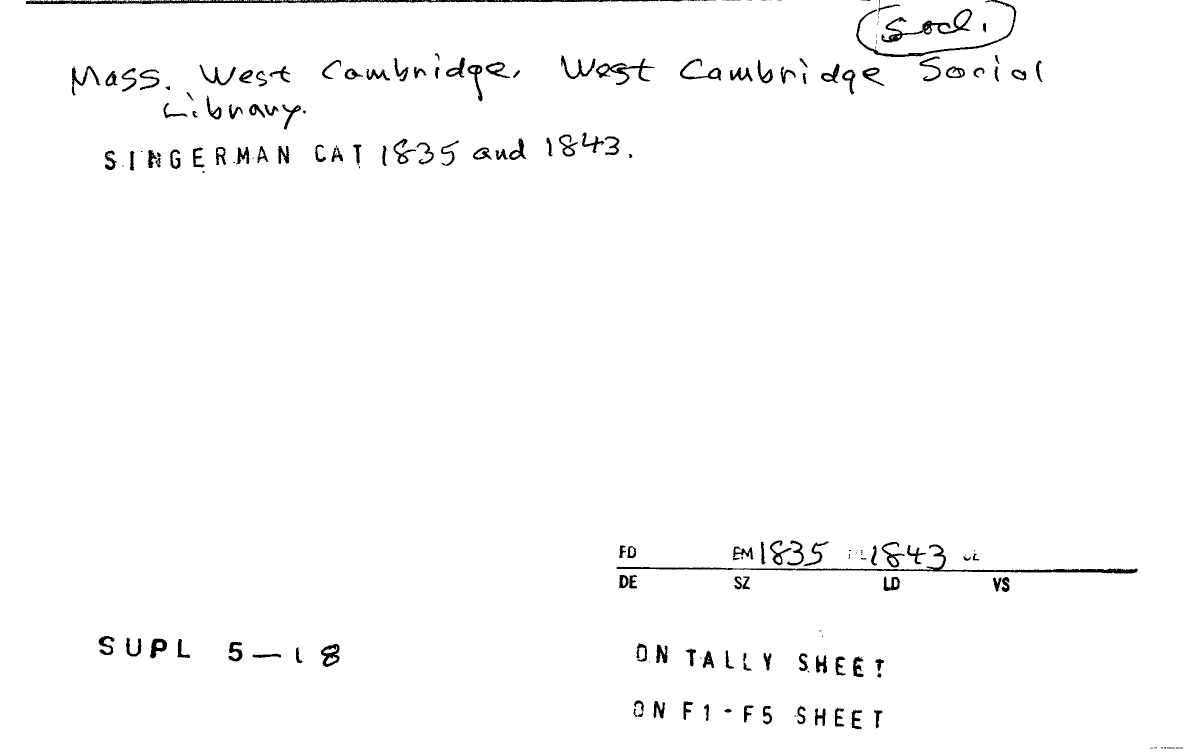 Socl.
Mass. West Cambridge. West Cambridge Social
Library.
SINGERMAN CAT 1835 and 1843.
FD EM 1835 1843
DE SZ LD VS
SUPL 5-18
ON TALLY SHEET
ON F1-F5 SHEET